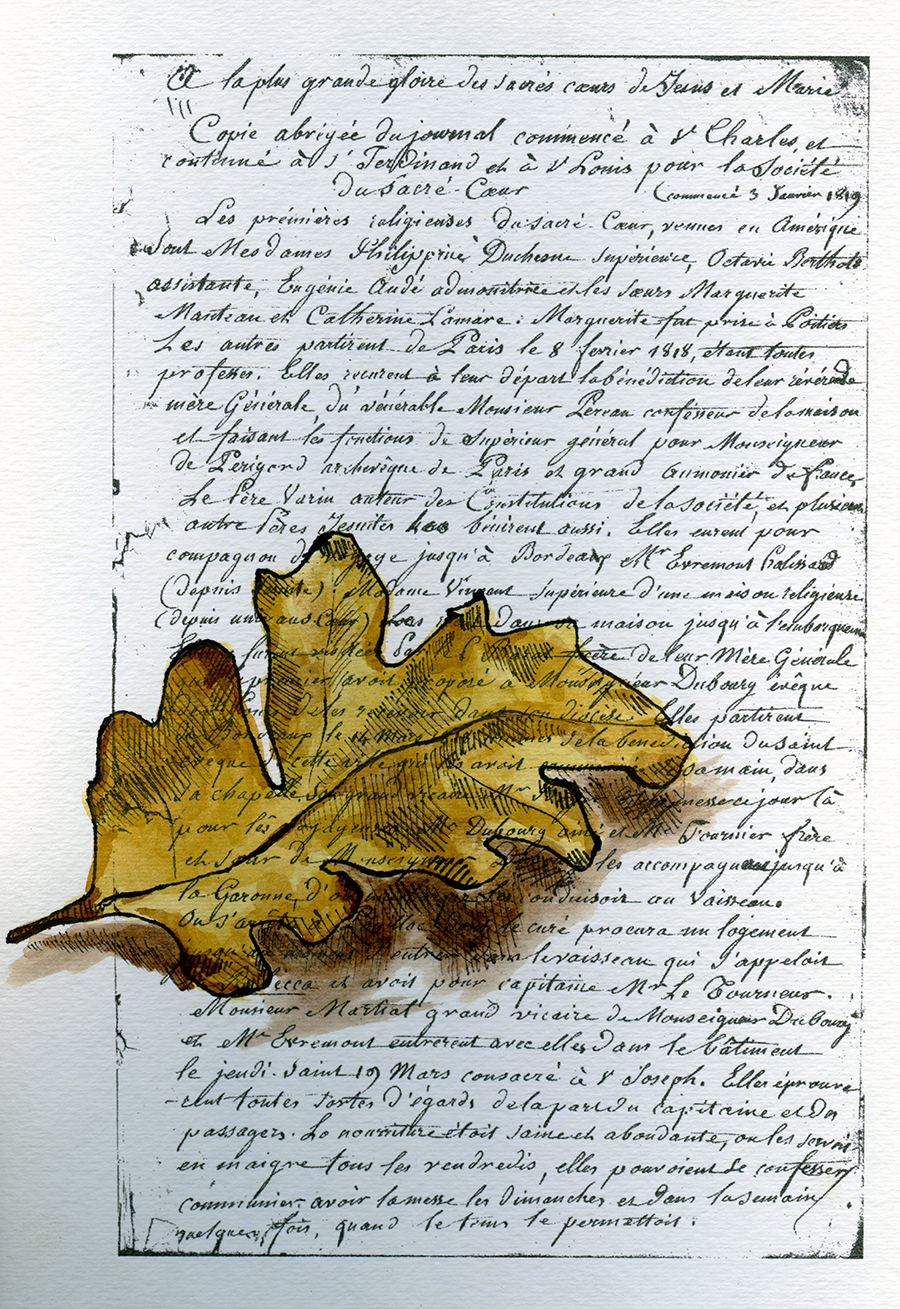 A la plus grande gloire des sacrés cœurs de Jesus et Marie
Copie abrégée du journal commencé à St Charles, et
continué à St Ferdinand et à St Louis pour la Société
du Sacré-Cœur (commencé 3 Janvier 1819
Les prémières religieuses du sacré-Cœur, venues en Amérique
sont Mesdames Philippine Duchesne supérieure, Octavie Berthold
assistante, Eugénie Audé admonitrice et les sœurs Marguerite
Manteau et Catherine Lamare. Marguerite fut prise à Poitiers
Les autres partirent de Paris le 8 fevrier 1818, étant toutes
professes. Elles recurent à leur départ la bénédiction de leur révérende
mère Générale, du vénérable Monsieur Perreau confesseur de la maison
et faisant les fonctions de supérieur général pour Monseigneur
de Périgord archevêque de Paris et grand aumonier de france,
Le Père Varin auteur des Constitutions de la société, et plusieurs
autre Pères Jesuites bénirent aussi. Elles eurent pour
compagnon de voyage jusqu'à Bordeaux Mr Evremont
(depuis Madame Vincent supérieure d'une maison religieuse
(depuis unie au sacré Cœur) les dans sa maison jusqu'à l'embarquem
furent visitées frère de leur Mère Générale
premier avoit proposé à Monseigneur Dubourg évêque
de les recevoir dans son diocèse. Elles partirent
de Bordeaux le Mars de la bénédiction du saint
évêque de cette ville qui les avoit sa main, dans
la chapelle, son grand vicaire Mr messe ce jour là
pour les voyageuses, Mr Dubourg et Mr Fournier frère
et sœur de Monseigneur les accompagnent jusqu'à
la Garonne, d'où conduisoit au vaisseau.
On s'arrêta le curé procura un logement
d'entrer dans le vaisseau qui s'appeloit
Rebecca et avoit pour capitaine Mr Le Tourneur.
Monsieur Martial grand vicaire de Monseigneur Dubourg
et Mr Evremont entrerent avec elles dans le bâtiment
le jeudi-saint 19 Mars consacré à St Joseph. Elles éprouve
-rent toutes sortes d'égards de la part du capitaine et des
passagers. La nourriture étoit saine et abondante, on les servoit
en maigre tous les vendredis, elles pouvoient se confesser,
communier, avoir la messe les dimanches et dans la semaine
quelques fois, quand le tems le permettoit.